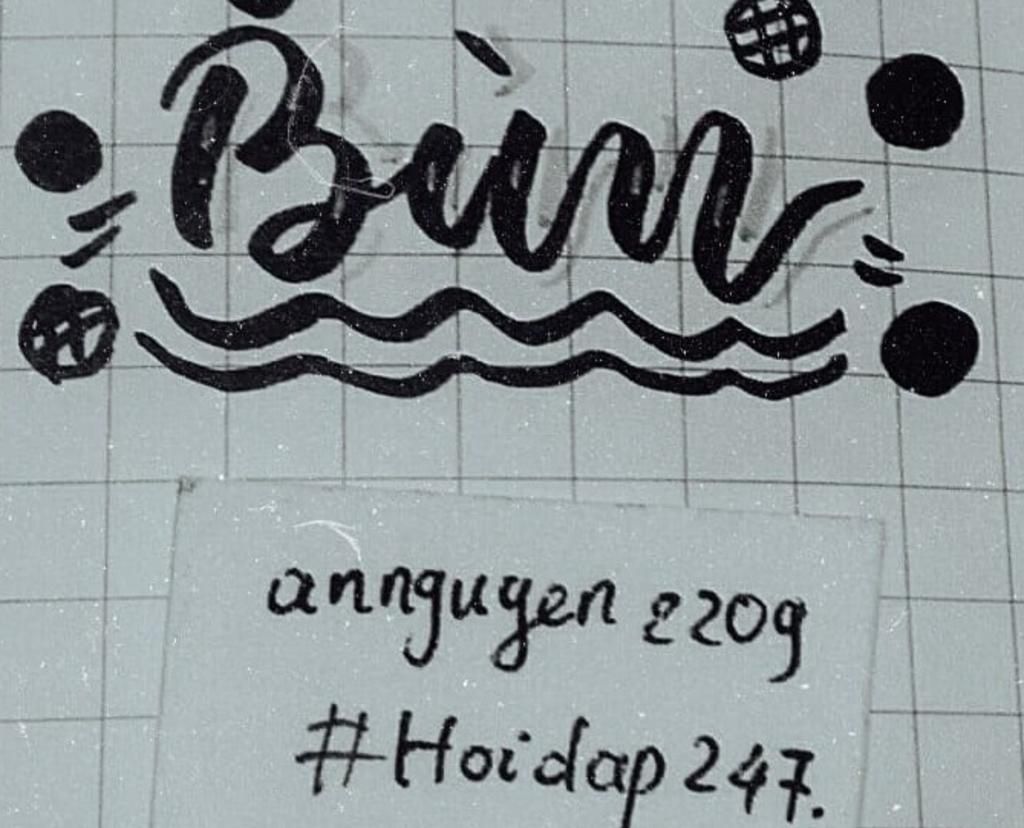 Bùm
annguyen 2209
#Hoidap 247.